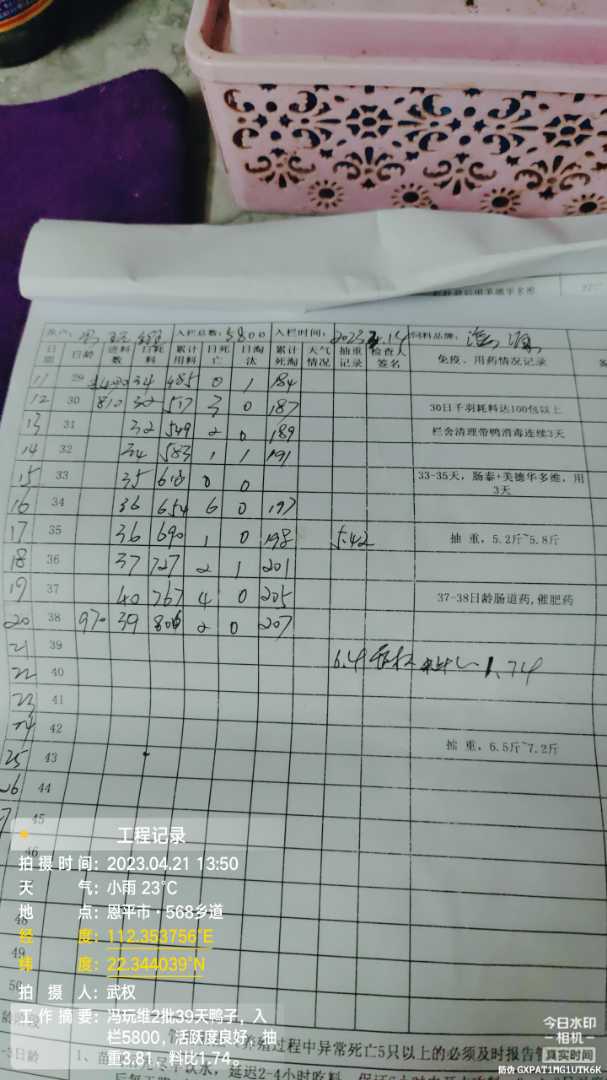 入栏总数: 5800 入栏时间: 2023 . 14 饲料品牌:
日期 日龄 进料数 日耗料 累计用料 日死亡 日淘汰 累计死淘 天气情况 抽重记录 检查人签名 免疫、用药情况记录
11 29 34 485 0 1 184
12 30 810 32 517 3 0 187 30日千羽耗料达100包以上
13 31 32 549 2 0 189 栏舍清理带鸭消毒连续3天
14 32 34 583 1 1 191
15 33 35 618 0 0 33-35天，肠泰+美德华多维，用3天
16 34 36 654 6 0 197
17 35 36 690 1 0 198 5.42 抽 重，5.2斤~5.8斤
18 36 37 727 2 1 201
19 37 40 767 4 0 205 37-38日龄肠道药,催肥药
20 38 970 39 806 2 0 207
21 39 6.4 1.74
22 40
23 41
24 42 抽 重，6.5斤~7.2斤
25 43
26 44
45
46
48
49
50
养殖过程中异常死亡5只以上的必须及时报告
延迟2-4小时吃料
工程记录
拍摄时间: 2023.04.21 13:50
天 气: 小雨 23℃
地 点: 恩平市·568乡道
经 度: 112.353756°E
纬 度: 22.344039°N
拍 摄 人: 武权
工作摘要: 冯玩维2批39天鸭子，入
栏5800，活跃度良好，抽
重3.81，料比1.74。
今日水印
-相机-
真实时间
防伪 GXPAT1MG1UTK6K